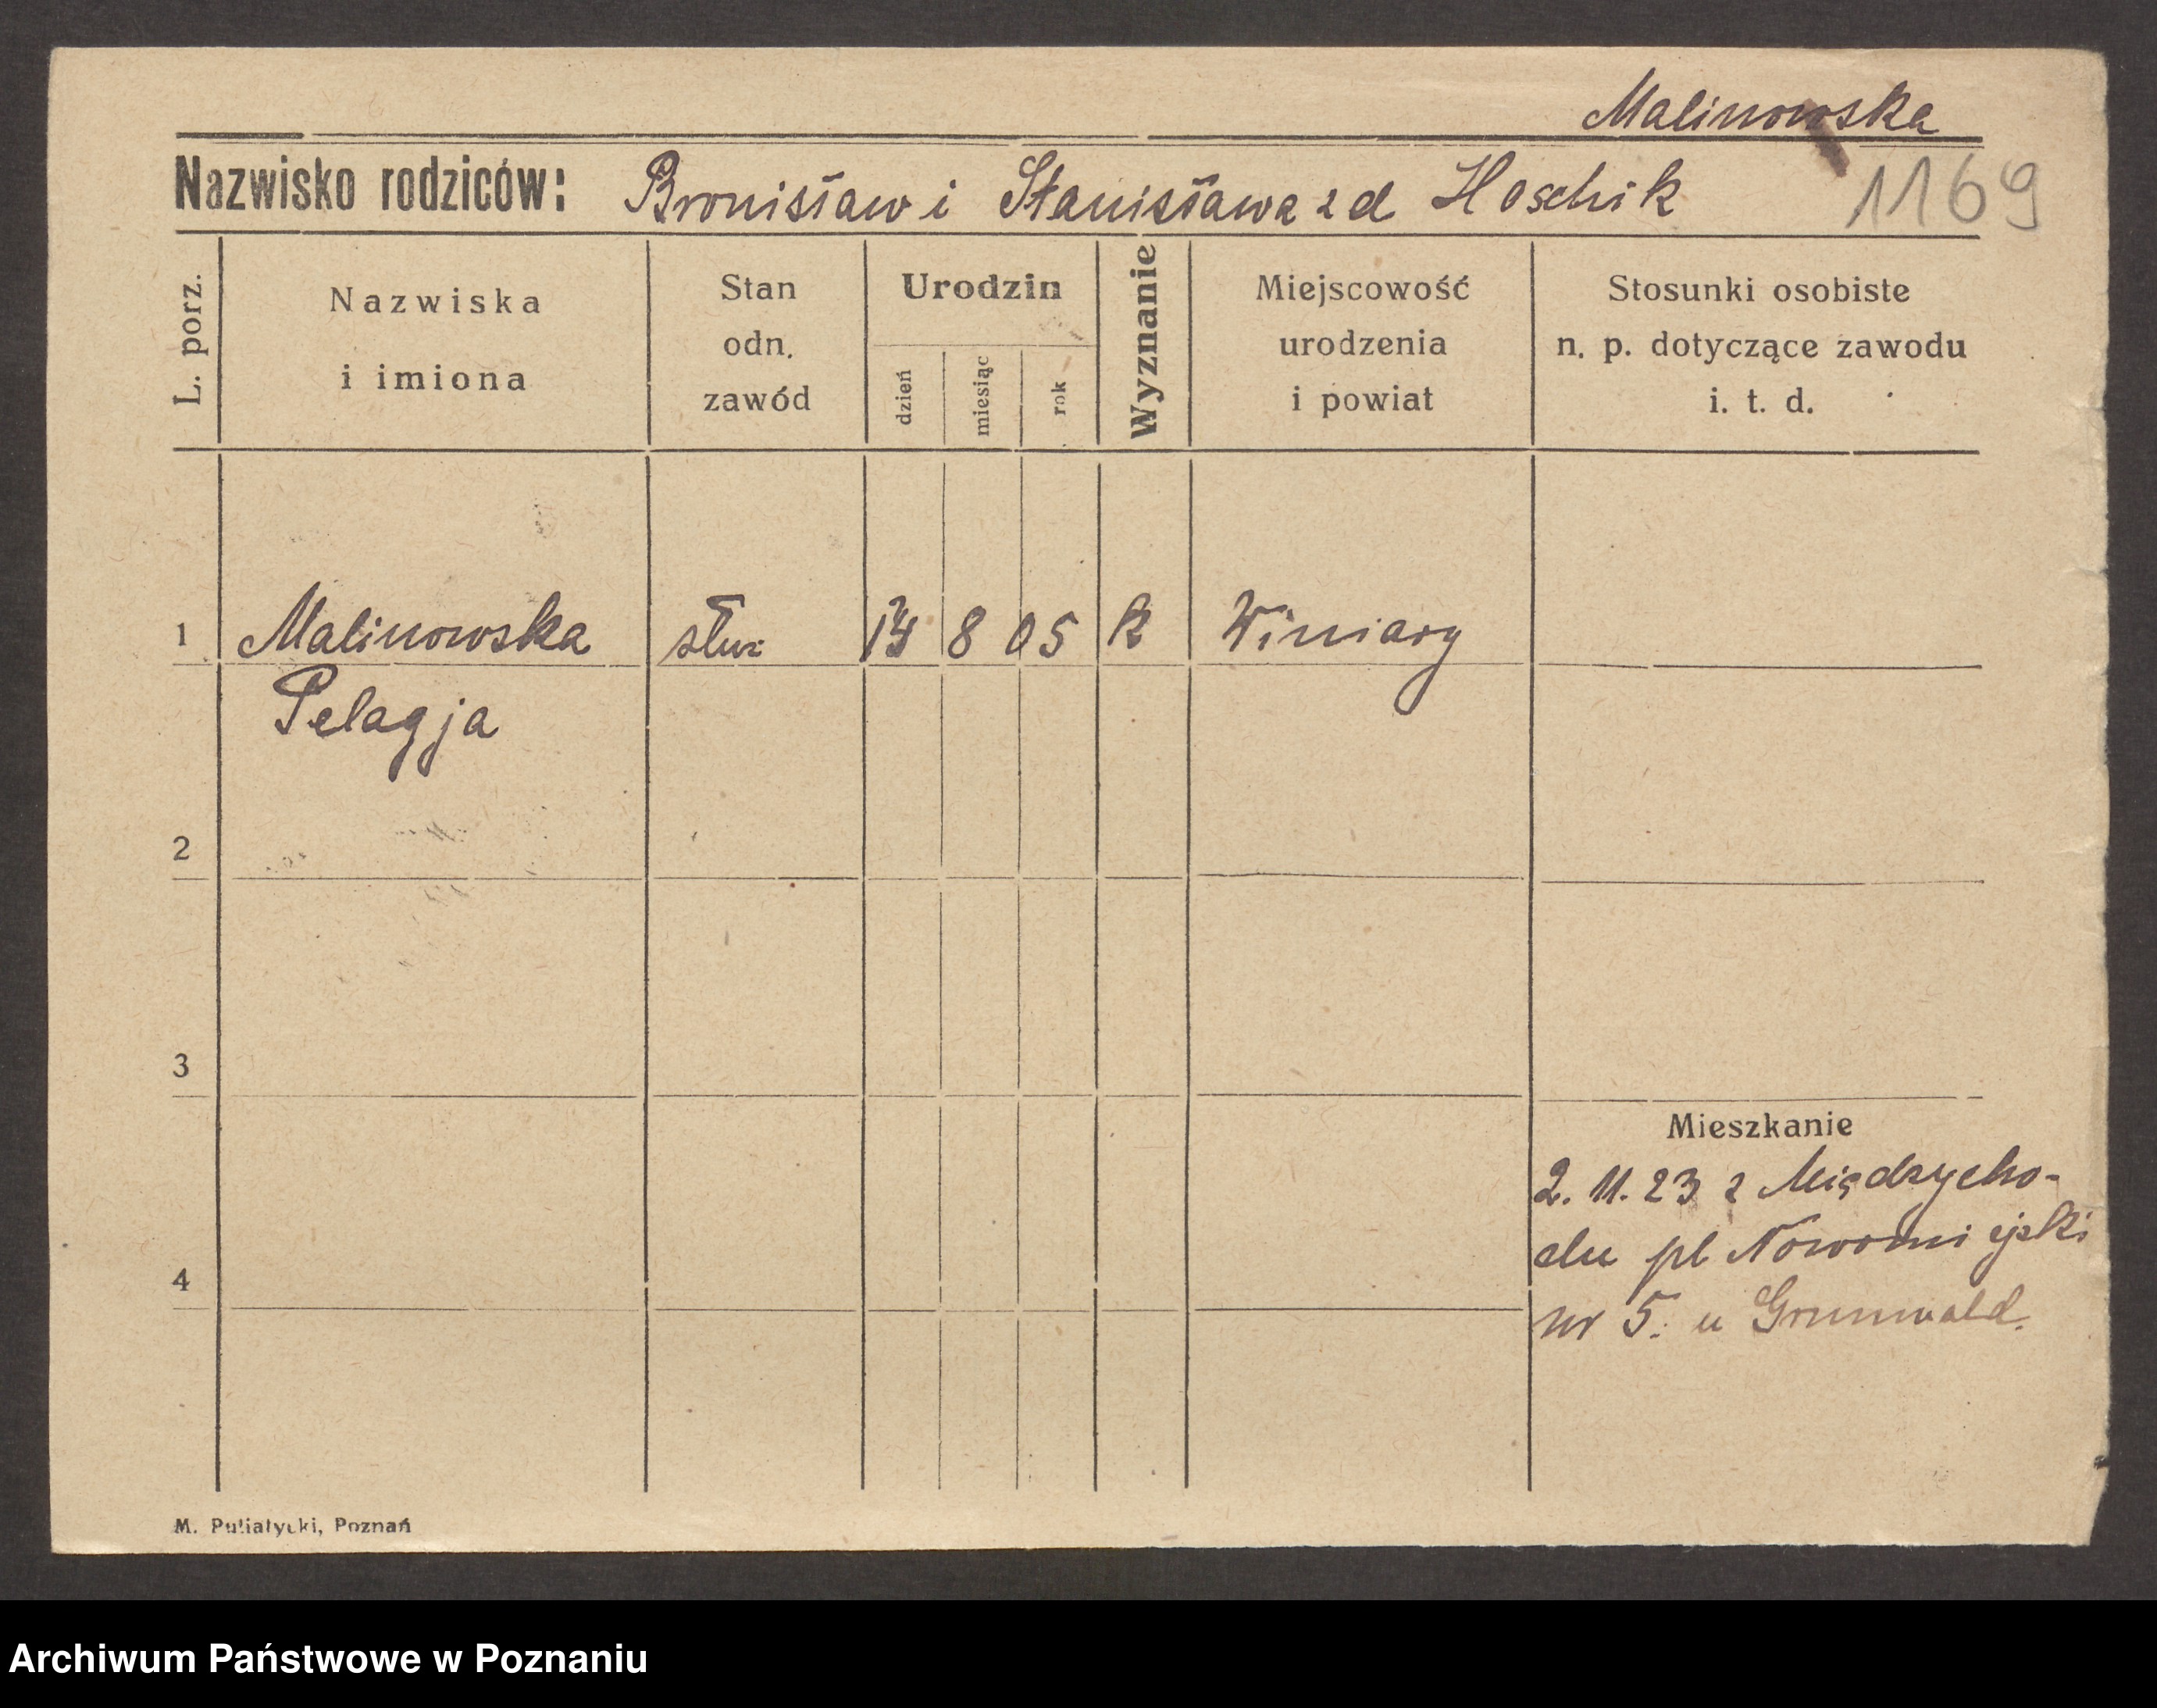 Malinowska
Nazwisko rodziców: Bronisław i Stanisława z d Hoschik
1169
L. porz.
Nazwiska
i imiona
Stan
odn.
zawód
Urodzin
dzień
miesiąc
rok
Wyznanie
Miejscowość
urodzenia
i powiat
Stosunki osobiste
n. p. dotyczące zawodu
i. t. d.
1 Malinowska służ 8 05 K Winiary
Pelagja
2
3
4
Mieszkanie
2. 11. 23 z Międzycho-
du pl Nowomiejski
nr 5. u Grunwald.
M. Putiatycki, Poznań
Archiwum Państwowe w Poznaniu